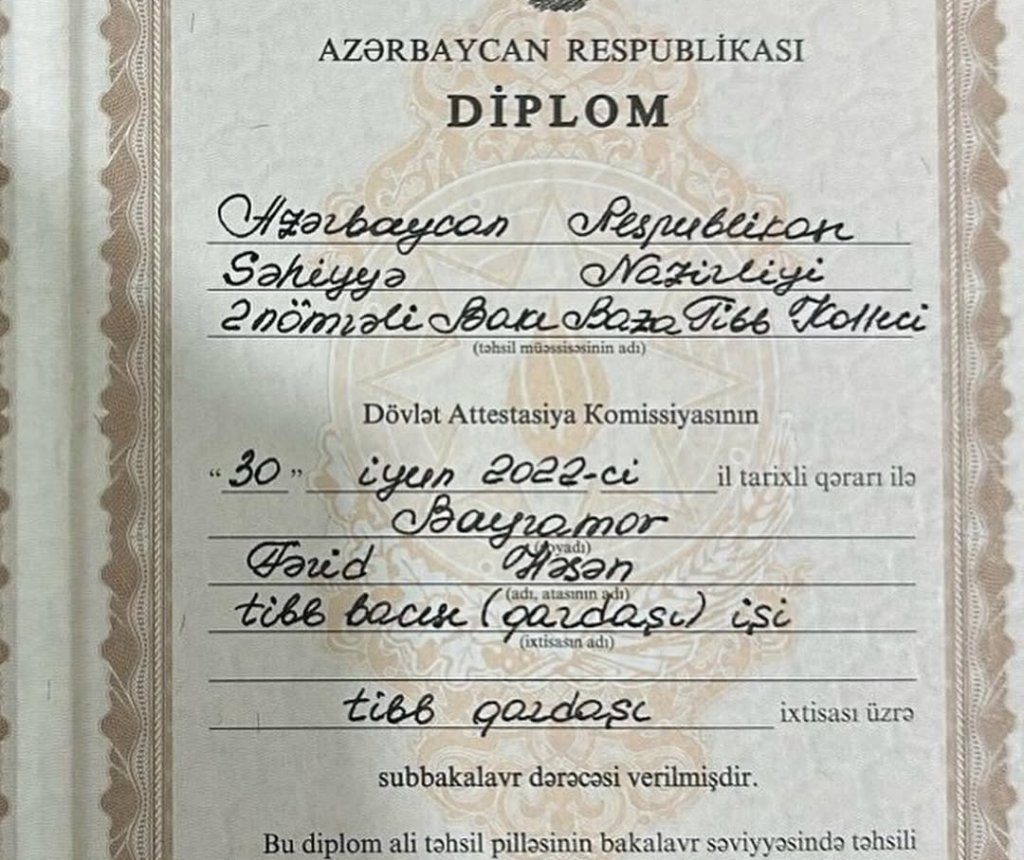 AZƏRBAYCAN RESPUBLİKASI
DİPLOM
Azərbaycan Respublikası
Səhiyyə Nazirliyi
2 nömrəli Bakı Baza Tibb Kolleci
(təhsil müəssisəsinin adı)
Dövlət Attestasiya Komissiyasının
“ 30 ” iyun 2022-ci il tarixli qərarı ilə
Bayramov
(soyadı)
Fərid Həsən
(adı, atasının adı)
tibb bacısı (qardaşı) işi
(ixtisasın adı)
tibb qardaşı ixtisası üzrə
subbakalavr dərəcəsi verilmişdir.
Bu diplom ali təhsil pilləsinin bakalavr səviyyəsində təhsili